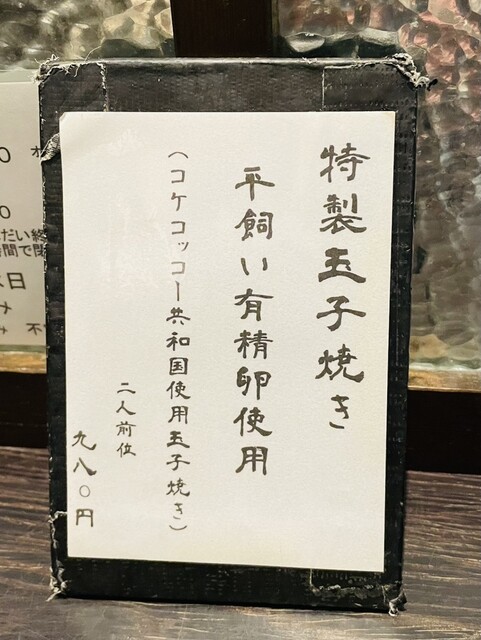 特製玉子焼き
平飼い有精卵使用
(コケコッコー共和国使用玉子焼き)
二人前位
九八〇円